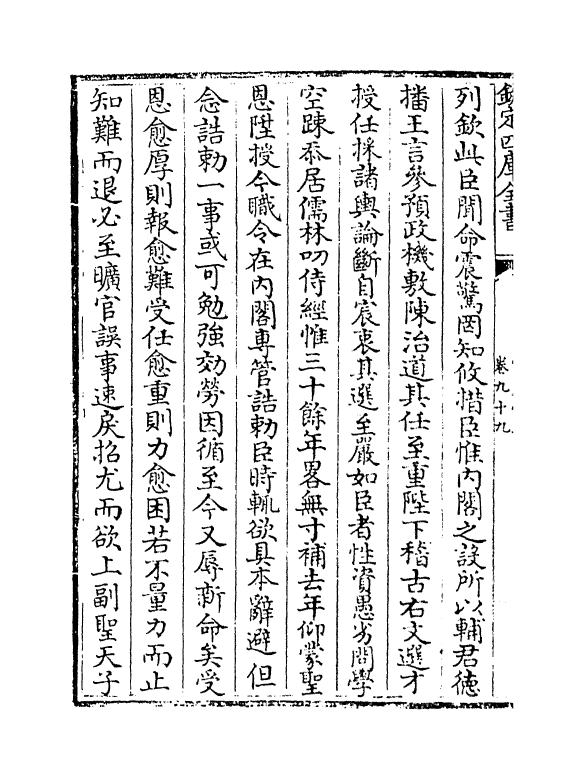 欽定四庫全書
卷九十九
列欽此臣聞命震驚罔知攸措臣惟内閣之設所以輔君德
播王言參預政機敷陳治道其任至重陛下稽古右文選才
授任採諸輿論斷自宸衷其選至嚴如臣者性資愚劣問學
空踈忝居儒林叨侍經惟三十餘年畧無寸補去年仰蒙聖
恩陞授今職令在内閣專管誥勅臣時輒欲具本辭避但
念誥勅一事或可勉強効勞因循至今又辱新命矣受
恩愈厚則報愈難受任愈重則力愈困若不量力而止
知難而退必至曠官誤事速戾招尤而欲上副聖天子